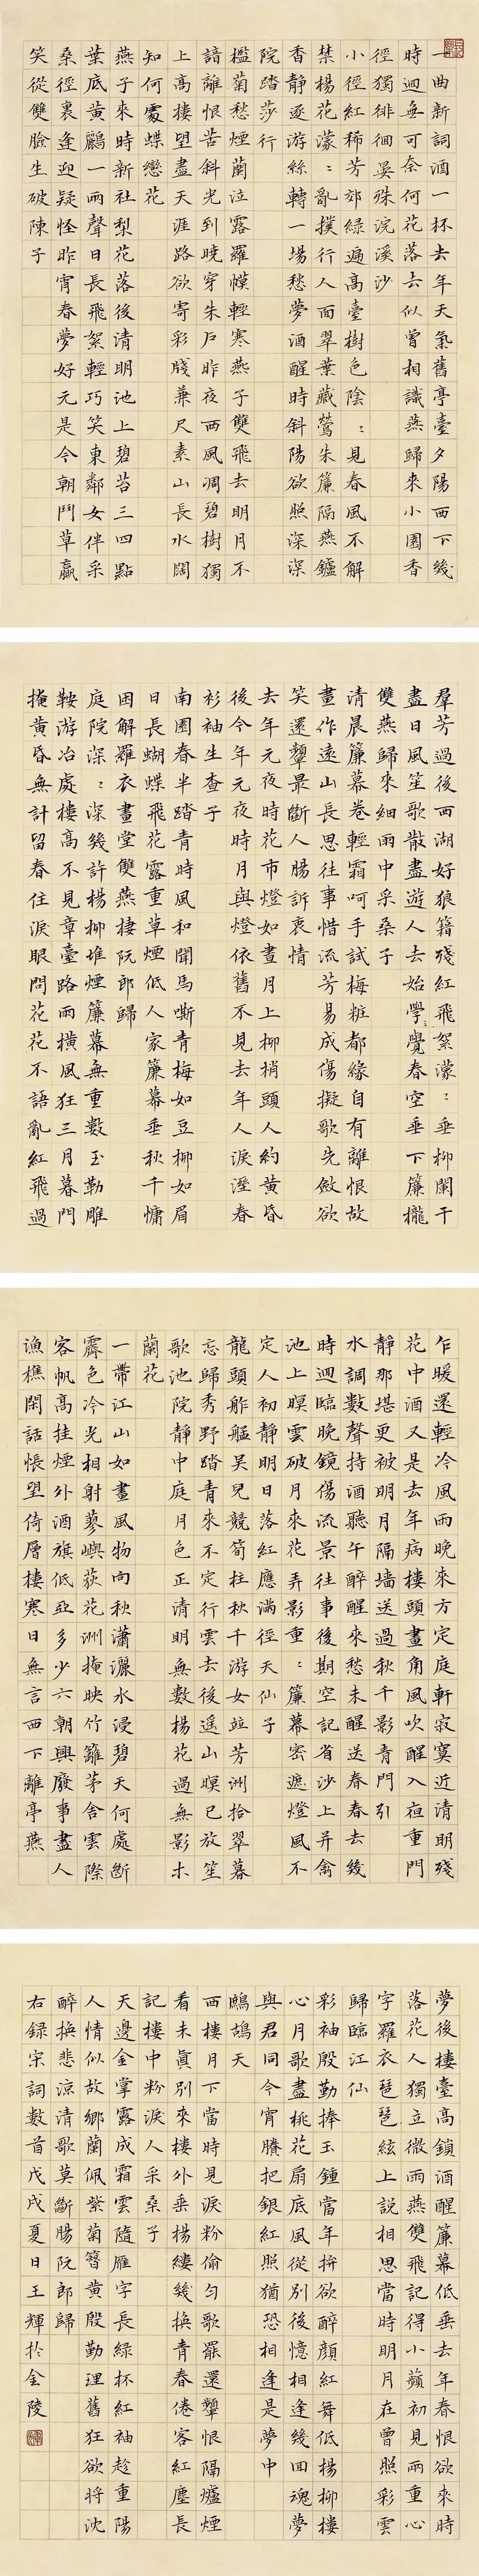 一曲新詞酒一杯去年天氣舊亭臺夕陽西下幾
時迴無可奈何花落去似曾相識燕歸來小園香
徑獨徘徊晏殊浣溪沙
小徑紅稀芳郊綠遍高臺樹色陰:見春風不解
禁楊花濛:亂撲行人面翠葉藏鶯朱簾隔燕鑪
香靜逐游絲轉一場愁夢酒醒時斜陽欲照深深
院踏莎行
檻菊愁煙蘭泣露羅幙輕寒燕子雙飛去明月不
諳離恨苦斜光到曉穿朱戶昨夜西風凋碧樹獨
上高樓望盡天涯路欲寄彩牋兼尺素山長水闊
知何處蝶戀花
燕子來時新社梨花落後清明池上碧苔三四點
葉底黃鸝一兩聲日長飛絮輕巧笑東鄰女伴采
桑徑裏逢迎疑怪昨宵春夢好元是今朝鬥草贏
笑從雙臉生破陳子
羣芳過後西湖好狼籍殘紅飛絮濛:垂柳闌干
盡日風笙歌散盡遊人去始學覺春空垂下簾櫳
雙燕歸來細雨中采桑子
清晨簾幕卷輕霜呵手試梅粧都緣自有離恨故
畫作遠山長思往事惜流芳易成傷擬歌先斂欲
笑還顰最斷人腸訴衷情
去年元夜時花市燈如晝月上柳梢頭人約黃昏
後今年元夜時月與燈依舊不見去年人淚溼春
衫袖生查子
南園春半踏青時風和聞馬嘶青梅如豆柳如眉
日長蝴蝶飛花露重草煙低人家簾幕垂秋千慵
困解羅衣畫堂雙燕棲阮郎歸
庭院深:深幾許楊柳堆煙簾幕無重數玉勒雕
鞍游冶處樓高不見章臺路雨橫風狂三月暮門
掩黃昏無計留春住淚眼問花花不語亂紅飛過
乍暖還輕冷風雨晚來方定庭軒寂寞近清明殘
花中酒又是去年病樓頭畫角風吹醒入夜重門
靜那堪更被明月隔墻送過秋千影青門引
水調數聲持酒聽午醉醒來愁未醒送春春去幾
時迴臨晚鏡傷流景往事後期空記省沙上并禽
池上暝雲破月來花弄影重:簾幕密遮燈風不
定人初靜明日落紅應滿徑天仙子
龍頭舴艋吳兒競筍柱秋千游女竝芳洲拾翠暮
忘歸秀野踏青來不定行雲去後遙山暝已放笙
歌池院靜中庭月色正清明無數楊花過無影木
蘭花
一帶江山如畫風物向秋瀟灑水浸碧天何處斷
霽色冷光相射蓼嶼荻花洲掩映竹籬茅舍雲際
客帆高挂煙外酒旗低亞多少六朝興廢事盡人
漁樵閑話悵望倚層樓寒日無言西下離亭燕
夢後樓臺高鎖酒醒簾幕低垂去年春恨欲來時
落花人獨立微雨燕雙飛記得小蘋初見兩重心
字羅衣琵琶絃上說相思當時明月在曾照彩雲
歸臨江仙
彩袖殷勤捧玉鍾當年拚欲醉顏紅舞低楊柳樓
心月歌盡桃花扇底風從別後憶相逢幾回魂夢
與君同今宵賸把銀紅照猶恐相逢是夢中
鷓鴣天
西樓月下當時見淚粉偷勻歌罷還顰恨隔爐煙
看未真別來樓外垂楊縷幾換青春倦客紅塵長
記樓中粉淚人采桑子
天邊金掌露成霜雲隨雁字長綠杯紅袖趁重陽
人情似故鄉蘭佩紫菊簪黃殷勤理舊狂欲將沈
醉換悲涼清歌莫斷腸阮郎歸
右録宋詞數首戊戌夏日王輝於金陵